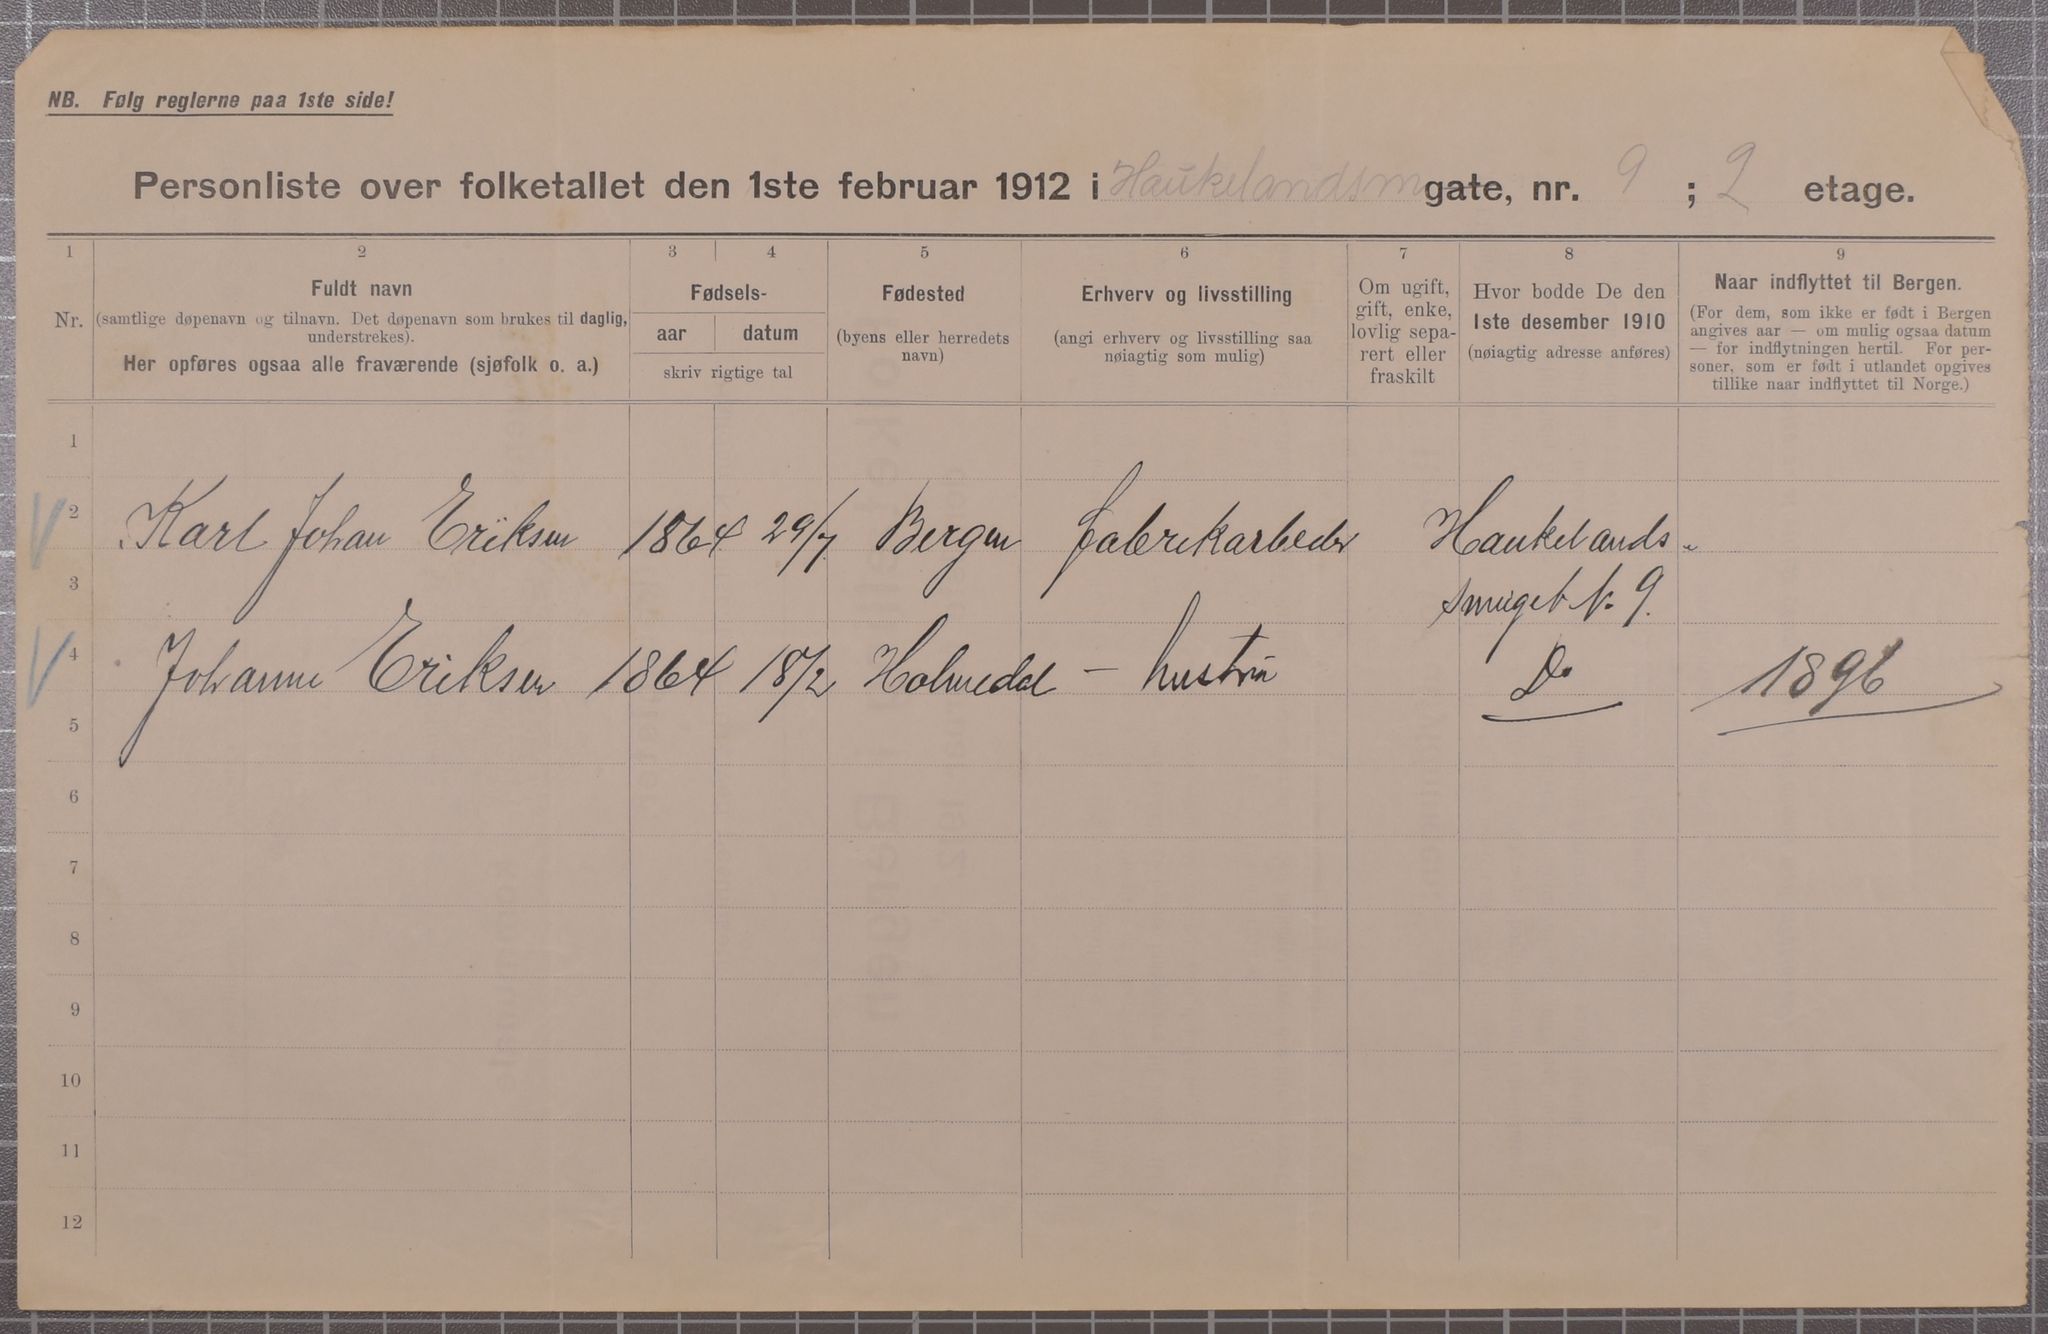 NB. Følg reglerne paa 1ste side!
Personliste over folketallet den 1ste februar 1912 i Haukelandsm gate, nr. 9 ; 2 etage.
1 2 3 4 5 6 7 8 9
Nr.
Fuldt navn
(samtlige døpenavn og tilnavn. Det døpenavn som brukes til daglig,
understrekes).
Her opføres ogsaa alle fraværende (sjøfolk o. a.)
Fødsels-
aar datum
skriv rigtige tal
Fødested
(byens eller herredets
navn)
Erhverv og livsstilling
(angi erhverv og livsstilling saa
nøiagtig som mulig)
Om ugift,
gift, enke,
lovlig sepa-
rert eller
fraskilt
Hvor bodde De den
1ste desember 1910
(nøiagtig adresse anføres)
Naar indflyttet til Bergen.
(For dem, som ikke er født i Bergen
angives aar — om mulig ogsaa datum
— for indflytningen hertil. For per-
soner, som er født i utlandet opgives
tillike naar indflyttet til Norge.)
1
V 2 Karl Johan Eriksen 1864 29/7 Bergen fabrikarbeder Haukelands-
3 smuget N. 9.
V 4 Johanne Eriksen 1864 18/2 Holmedal - hustru Do 1896
5
6
7
8
9
10
11
12